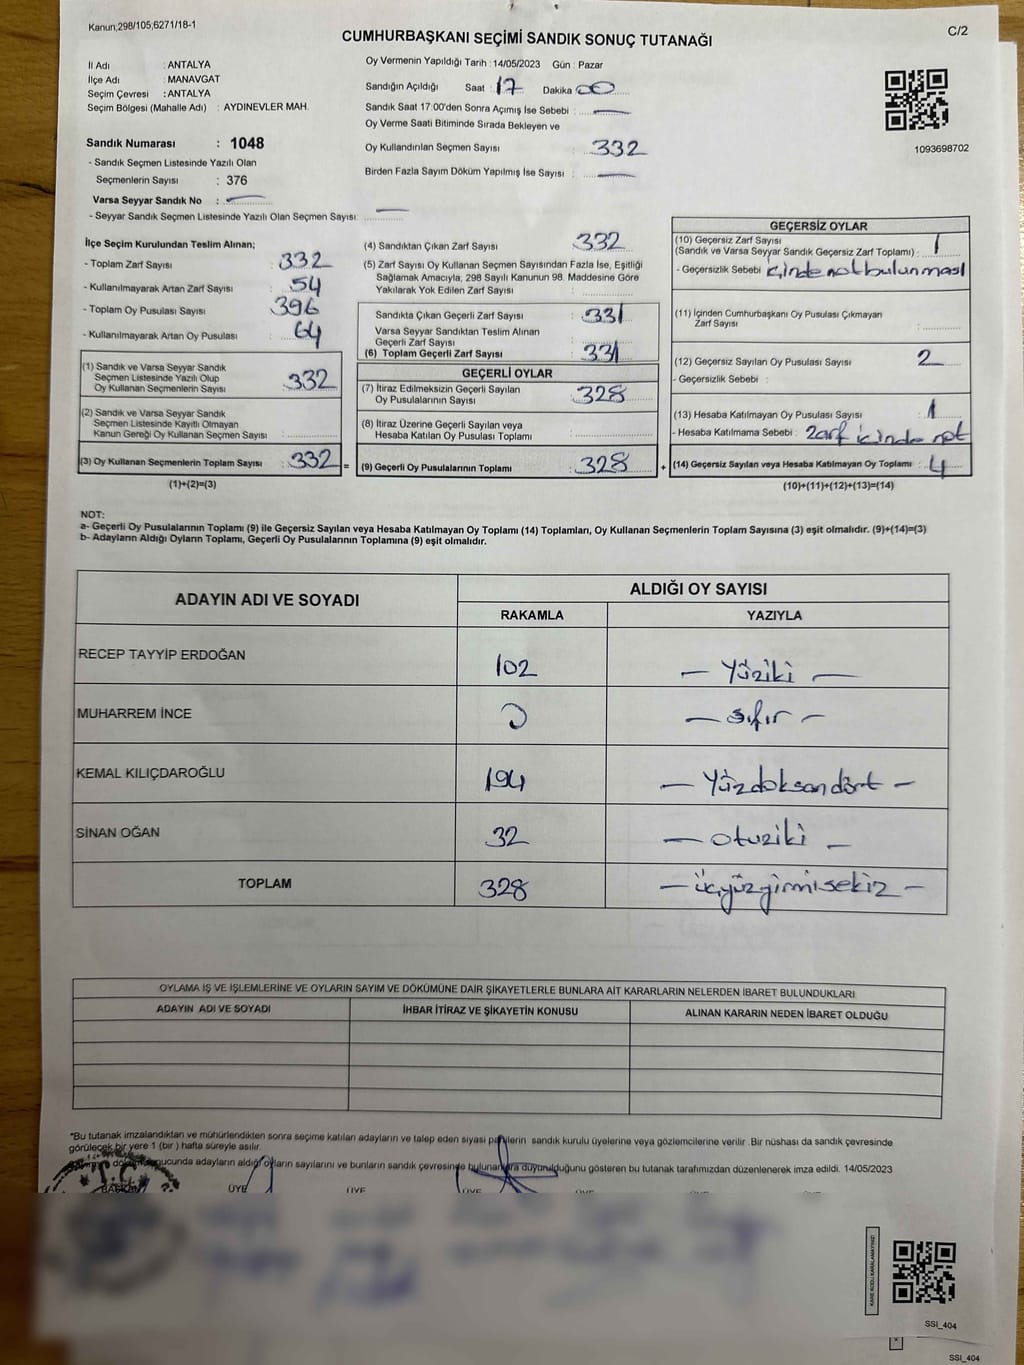 Kanun;298/105,6271/18-1
C/2
CUMHURBAŞKANI SEÇİMİ SANDIK SONUÇ TUTANAĞI
İl Adı : ANTALYA
İlçe Adı : MANAVGAT
Seçim Çevresi : ANTALYA
Seçim Bölgesi (Mahalle Adı) : AYDINEVLER MAH.
Sandık Numarası : 1048
- Sandık Seçmen Listesinde Yazılı Olan
Seçmenlerin Sayısı : 376
Varsa Seyyar Sandık No :
- Seyyar Sandık Seçmen Listesinde Yazılı Olan Seçmen Sayısı:
Oy Vermenin Yapıldığı Tarih : 14/05/2023 Gün : Pazar
Sandığın Açıldığı Saat : 17 Dakika 00
Sandık Saat 17:00'den Sonra Açımış İse Sebebi :
Oy Verme Saati Bitiminde Sırada Bekleyen ve
Oy Kullandırılan Seçmen Sayısı : 332
Birden Fazla Sayım Döküm Yapılmış İse Sayısı :
1093698702
İlçe Seçim Kurulundan Teslim Alınan;
- Toplam Zarf Sayısı : 332
- Kullanılmayarak Artan Zarf Sayısı : 54
- Toplam Oy Pusulası Sayısı : 396
- Kullanılmayarak Artan Oy Pusulası : 64
(1) Sandık ve Varsa Seyyar Sandık
Seçmen Listesinde Yazılı Olup
Oy Kullanan Seçmenlerin Sayısı : 332
(2) Sandık ve Varsa Seyyar Sandık
Seçmen Listesinde Kayıtlı Olmayan
Kanun Gereği Oy Kullanan Seçmen Sayısı :
(3) Oy Kullanan Seçmenlerin Toplam Sayısı : 332 =
(1)+(2)=(3)
(4) Sandıktan Çıkan Zarf Sayısı : 332
(5) Zarf Sayısı Oy Kullanan Seçmen Sayısından Fazla İse, Eşitliği
Sağlamak Amacıyla, 298 Sayılı Kanunun 98. Maddesine Göre
Yakılarak Yok Edilen Zarf Sayısı :
Sandıkta Çıkan Geçerli Zarf Sayısı : 331
Varsa Seyyar Sandıktan Teslim Alınan
Geçerli Zarf Sayısı :
(6) Toplam Geçerli Zarf Sayısı : 331
GEÇERLİ OYLAR
(7) İtiraz Edilmeksizin Geçerli Sayılan
Oy Pusulalarının Sayısı : 328
(8) İtiraz Üzerine Geçerli Sayılan veya
Hesaba Katılan Oy Pusulası Toplamı :
(9) Geçerli Oy Pusulalarının Toplamı : 328 +
GEÇERSİZ OYLAR
(10) Geçersiz Zarf Sayısı
(Sandık ve Varsa Seyyar Sandık Geçersiz Zarf Toplamı) : 1
- Geçersizlik Sebebi : içinde not bulunması
(11) İçinden Cumhurbaşkanı Oy Pusulası Çıkmayan
Zarf Sayısı :
(12) Geçersiz Sayılan Oy Pusulası Sayısı : 2
- Geçersizlik Sebebi :
(13) Hesaba Katılmayan Oy Pusulası Sayısı : 1
- Hesaba Katılmama Sebebi : zarf içinde not
(14) Geçersiz Sayılan veya Hesaba Katılmayan Oy Toplamı : 4
(10)+(11)+(12)+(13)=(14)
NOT:
a- Geçerli Oy Pusulalarının Toplamı (9) ile Geçersiz Sayılan veya Hesaba Katılmayan Oy Toplamı (14) Toplamları, Oy Kullanan Seçmenlerin Toplam Sayısına (3) eşit olmalıdır. (9)+(14)=(3)
b- Adayların Aldığı Oyların Toplamı, Geçerli Oy Pusulalarının Toplamına (9) eşit olmalıdır.
ADAYIN ADI VE SOYADI
ALDIĞI OY SAYISI
RAKAMLA YAZIYLA
RECEP TAYYİP ERDOĞAN 102 — Yüziki —
MUHARREM İNCE 0 — sıfır —
KEMAL KILIÇDAROĞLU 194 — Yüzdoksandört —
SİNAN OĞAN 32 — otuziki —
TOPLAM 328 — üçyüzyirmisekiz —
OYLAMA İŞ VE İŞLEMLERİNE VE OYLARIN SAYIM VE DÖKÜMÜNE DAİR ŞİKAYETLERLE BUNLARA AİT KARARLARIN NELERDEN İBARET BULUNDUKLARI
ADAYIN ADI VE SOYADI İHBAR İTİRAZ VE ŞİKAYETİN KONUSU ALINAN KARARIN NEDEN İBARET OLDUĞU
*Bu tutanak imzalandıktan ve mühürlendikten sonra seçime katılan adayların ve talep eden siyasi partilerin sandık kurulu üyelerine veya gözlemcilerine verilir. Bir nüshası da sandık çevresinde
görülecek bir yere 1 (bir ) hafta süreyle asılır.
sonucunda adayların aldığı oyların sayılarını ve bunların sandık çevresinde bulunanlara duyurulduğunu gösteren bu tutanak tarafımızdan düzenlenerek imza edildi. 14/05/2023
T.C.
BAŞKAN ÜYE ÜYE ÜYE ÜYE ÜYE
KARE KODU KARALAMAYINIZ!
SSİ_404
SSİ_404